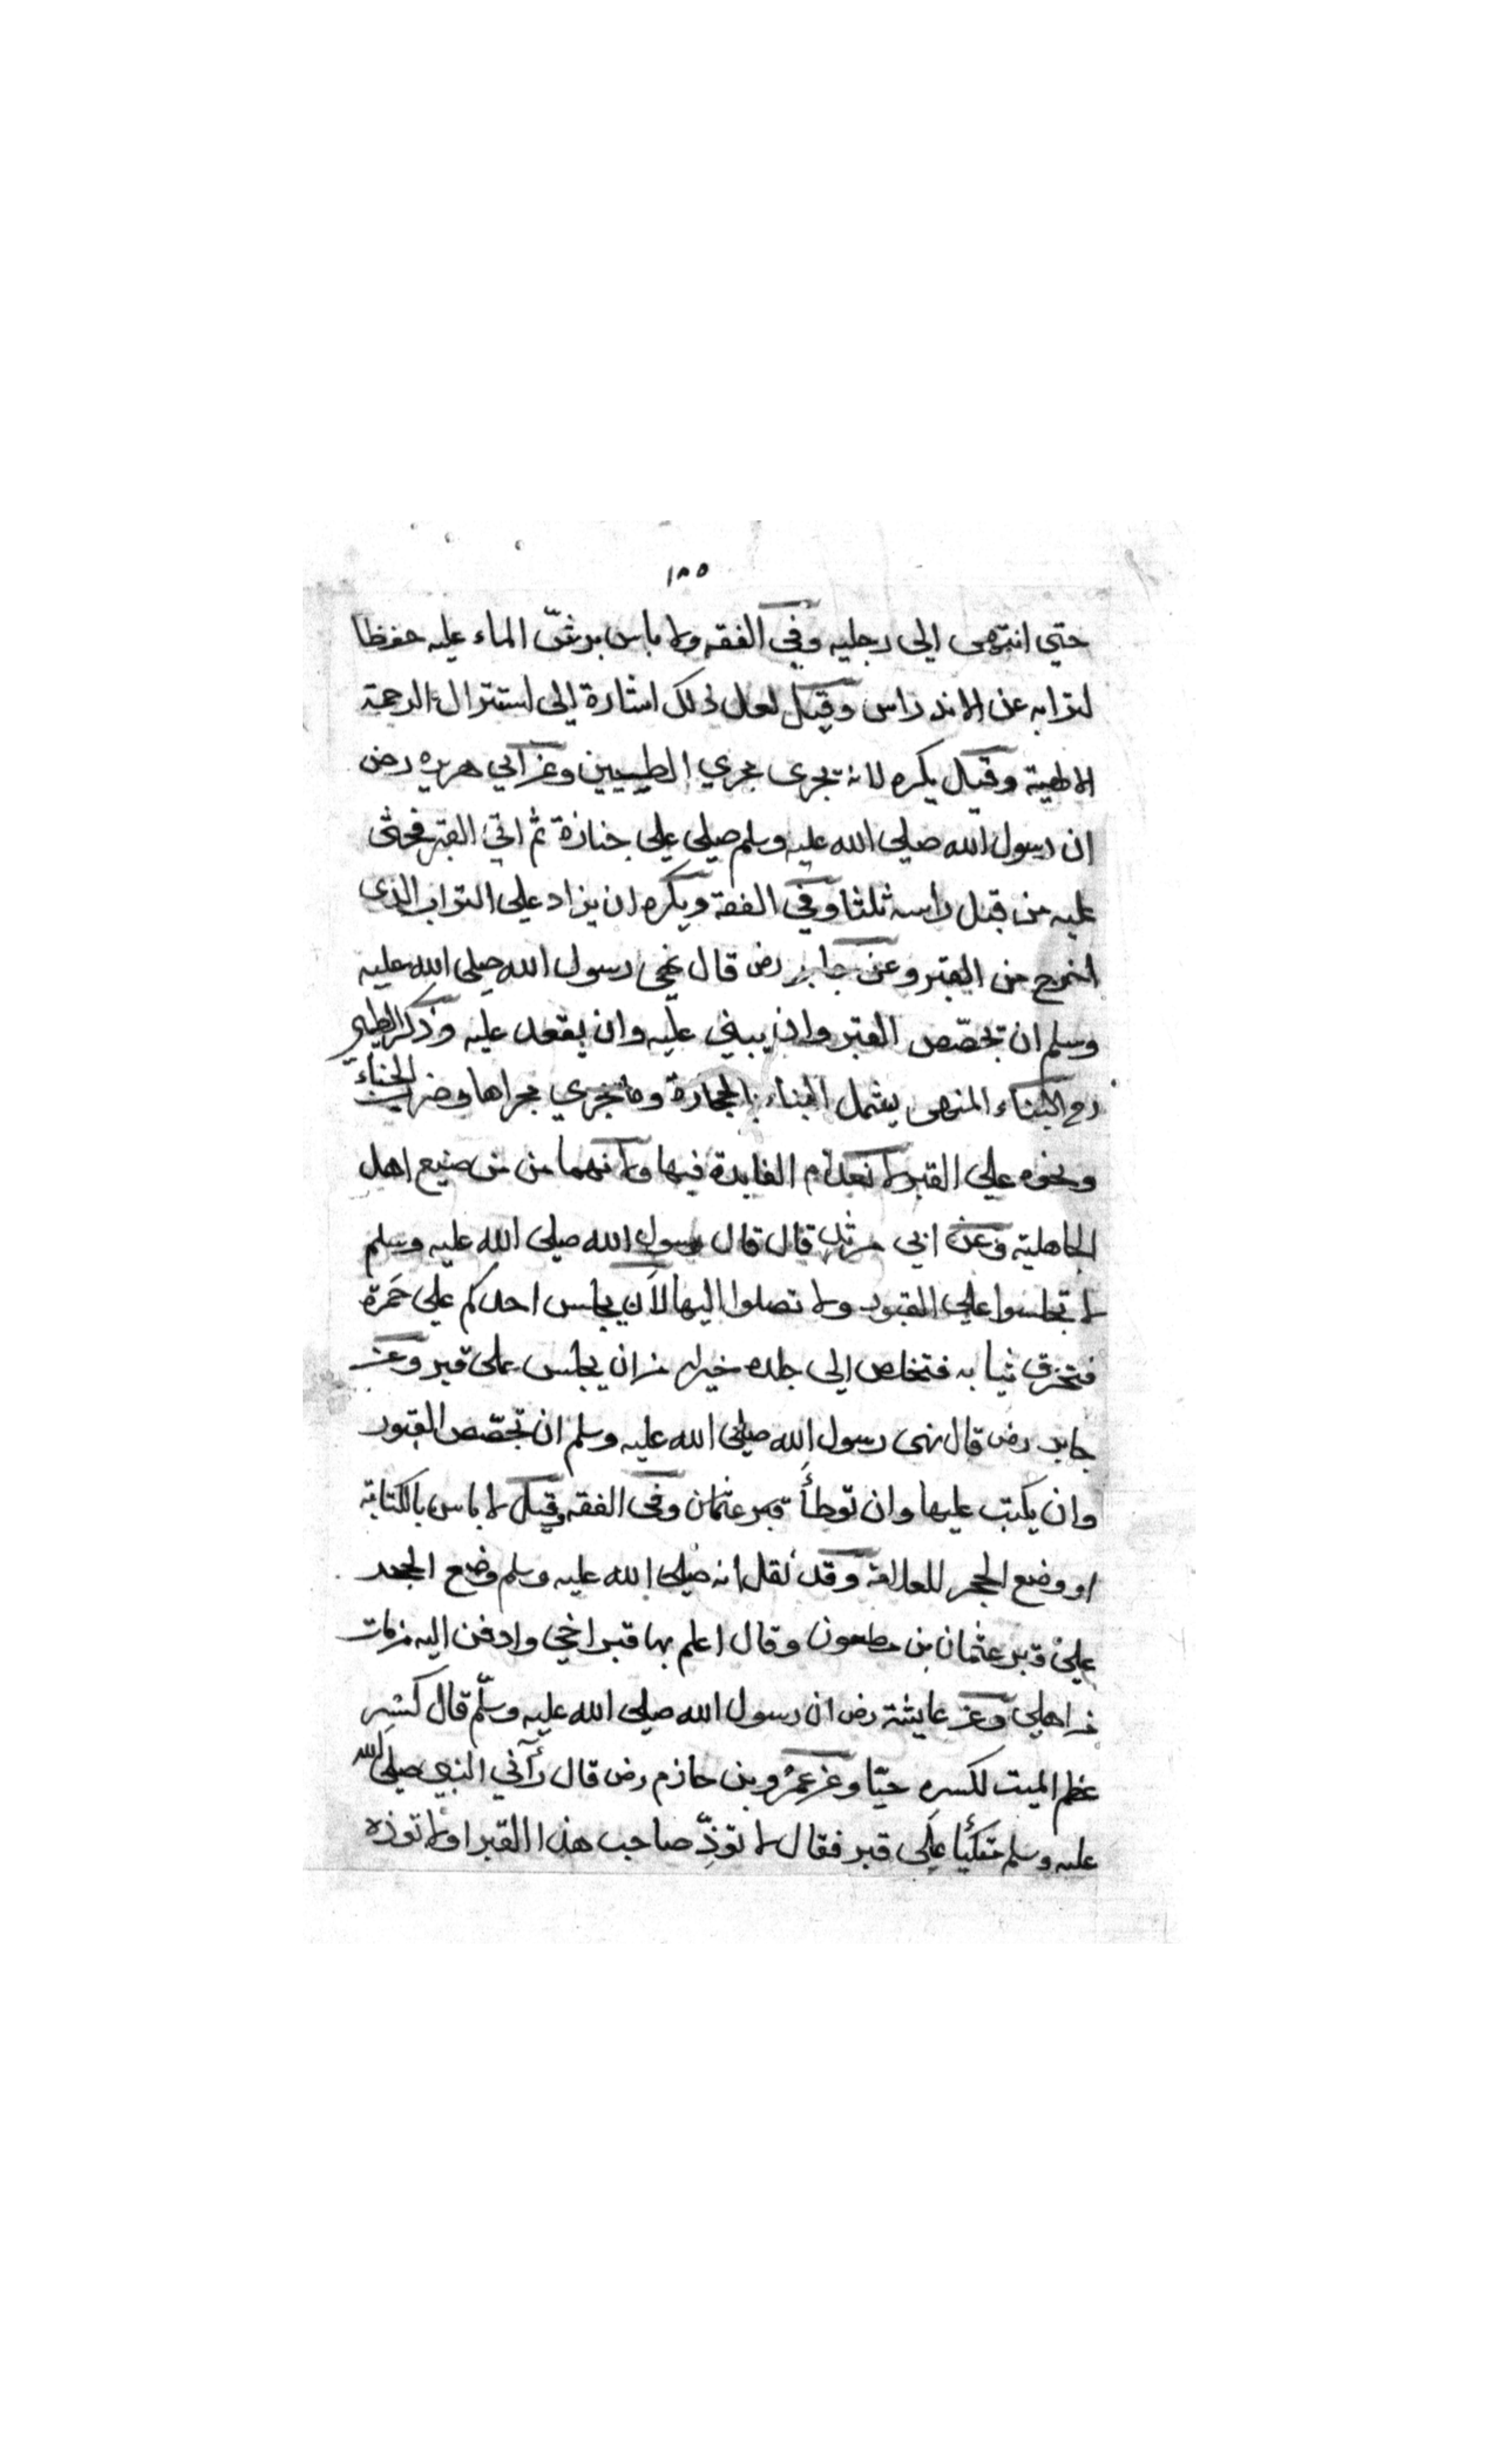 ١٨٥
حتي انتهى الى رجليه وفي الفقه ولا باس برشّ الماء عليه حفظا
لترابه عن الاندراس وقيل لعل ذلك اشارة الى استنزال الرحمة
الالهية وقيل يكره لانه يجرى مجري التطيين وعن ابي هريره رض
ان رسول الله صلى الله عليه وسلم صلى على جنازة ثم اتي القبر فحثى
عليه من قبل راسه ثلثا وفي الفقه ويكره ان يزاد على التراب الذى
اخرج من القبر وعن جابر رض قال نهى رسول الله صلى الله عليه
وسلم ان تجصّص القبر وان يبني عليه وان يقعد عليه وذكر الطيبي
رح البناء المنهى يشمل البناء بالحجارة وما يجري مجراها وضرب الخباء
ونحوه على القبر لانعدام الفايدة فيها ولانهما من من صنيع اهل
الجاهلية وعن ابي مرثد قال قال رسول الله صلى الله عليه وسلم
لا تجلسوا على القبور ولا تصلوا اليها لأن يجلس احدكم على جَمرة
فتخرق ثيابه فتخلص الى جلده خير له من ان يجلس على قبر وعن
جابر رض قال نهى رسول الله صلى الله عليه وسلم ان تجصّص القبور
وان يكتب عليها وان توطأ قبر عثمان وفى الفقه وقيل لا باس بالكتابة
او وضع الحجر للعلامة وقد نقل انه صلى الله عليه وسلم وضع الحجر
على قبر عثمان بن مظعون وقال اعلم بها قبر اخي وادفن اليه من مات
من اهلي وعن عايشة رض ان رسول الله صلى الله عليه وسلّم قال كَسْر
عظم الميت لكسره حيّا وعن عمرو بن حازم رض قال رآني النبي صلى الله
عليه وسلم متكئا على قبر فقال لا توذِّ صاحب هذا القبر او لا توذه